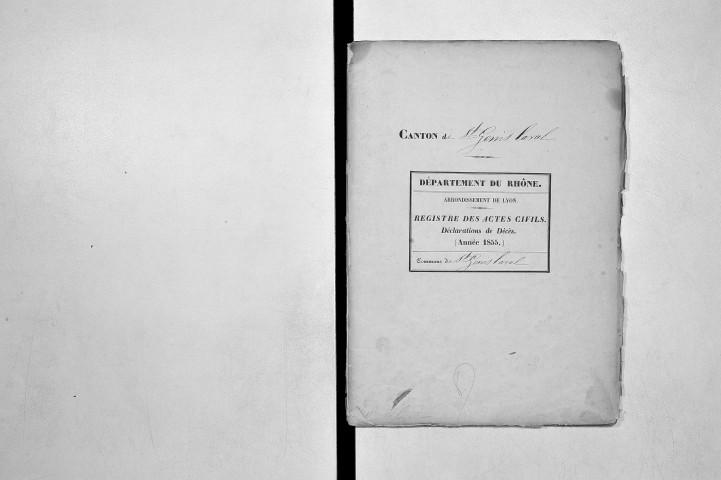 CANTON de St Genis Laval
DÉPARTEMENT DU RHÔNE.
ARRONDISSEMENT DE LYON.
REGISTRE DES ACTES CIVILS.
Déclarations de Décès.
(Année 1855.)
Commune de St Genis Laval